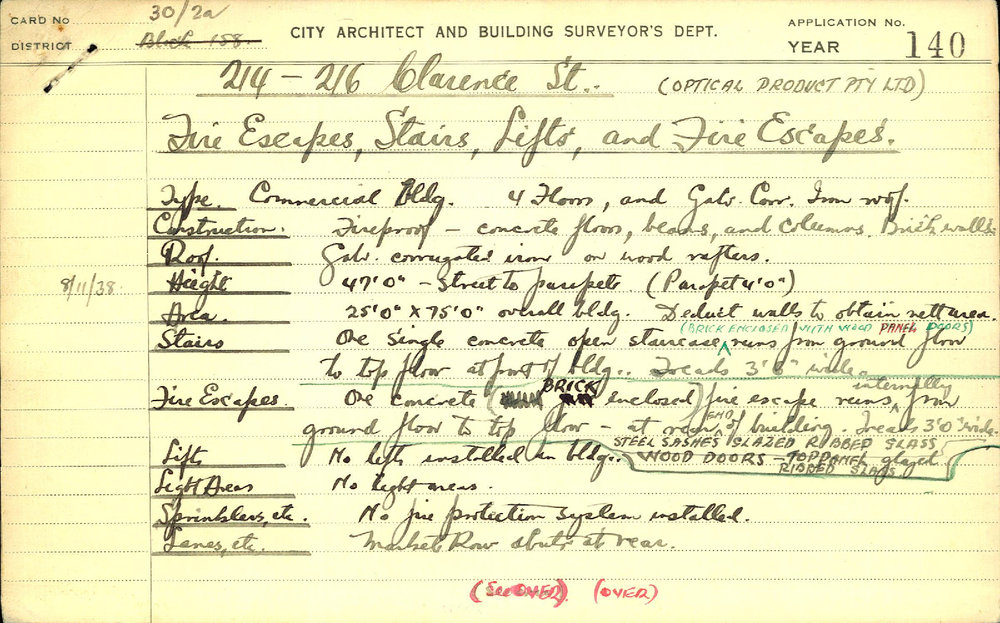 CARD No 30/2a
DISTRICT Block 158.
CITY ARCHITECT AND BUILDING SURVEYOR'S DEPT.
APPLICATION No.
YEAR 140
214 - 216 Clarence St.. (OPTICAL PRODUCT PTY LTD)
Fire Escapes, Stairs, Lifts, and Fire Escapes.
Type. Commercial Bldg. 4 Floors, and Galv. Corr. Iron roof.
Construction. Fireproof - concrete floors, beams, and columns. Brick walls.
Roof. Galv. corrugated iron on wood rafters.
8/11/38. Height 47'0" - Street to parapets (Parapet 4'0")
Area. 25'0" x 75'0" overall bldg. Deduct walls to obtain nett area.
(BRICK ENCLOSED WITH WOOD PANEL DOORS)
Stairs One single concrete open staircase runs from ground floor
to top floor at front of bldg.. Treads 3'6" wide.
internally
BRICK
Fire Escapes. One concrete ( enclosed) fire escape runs from
ground floor to top floor - at rear END of building. Treads 3'0" wide.
STEEL SASHES GLAZED RIBBED GLASS
Lifts No lifts installed in bldg.. WOOD DOORS - TOP PANEL glazed
RIBBED GLASS
Light Areas No light areas.
Sprinklers, etc. No fire protection system installed.
Lanes, etc. Market Row abuts at rear.
(See OVER) (OVER)